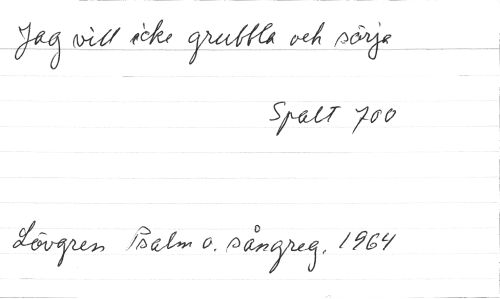 Jag vill icke grubbla och sörja
Spalt 700
Lövgren Psalm o. sångreg. 1964